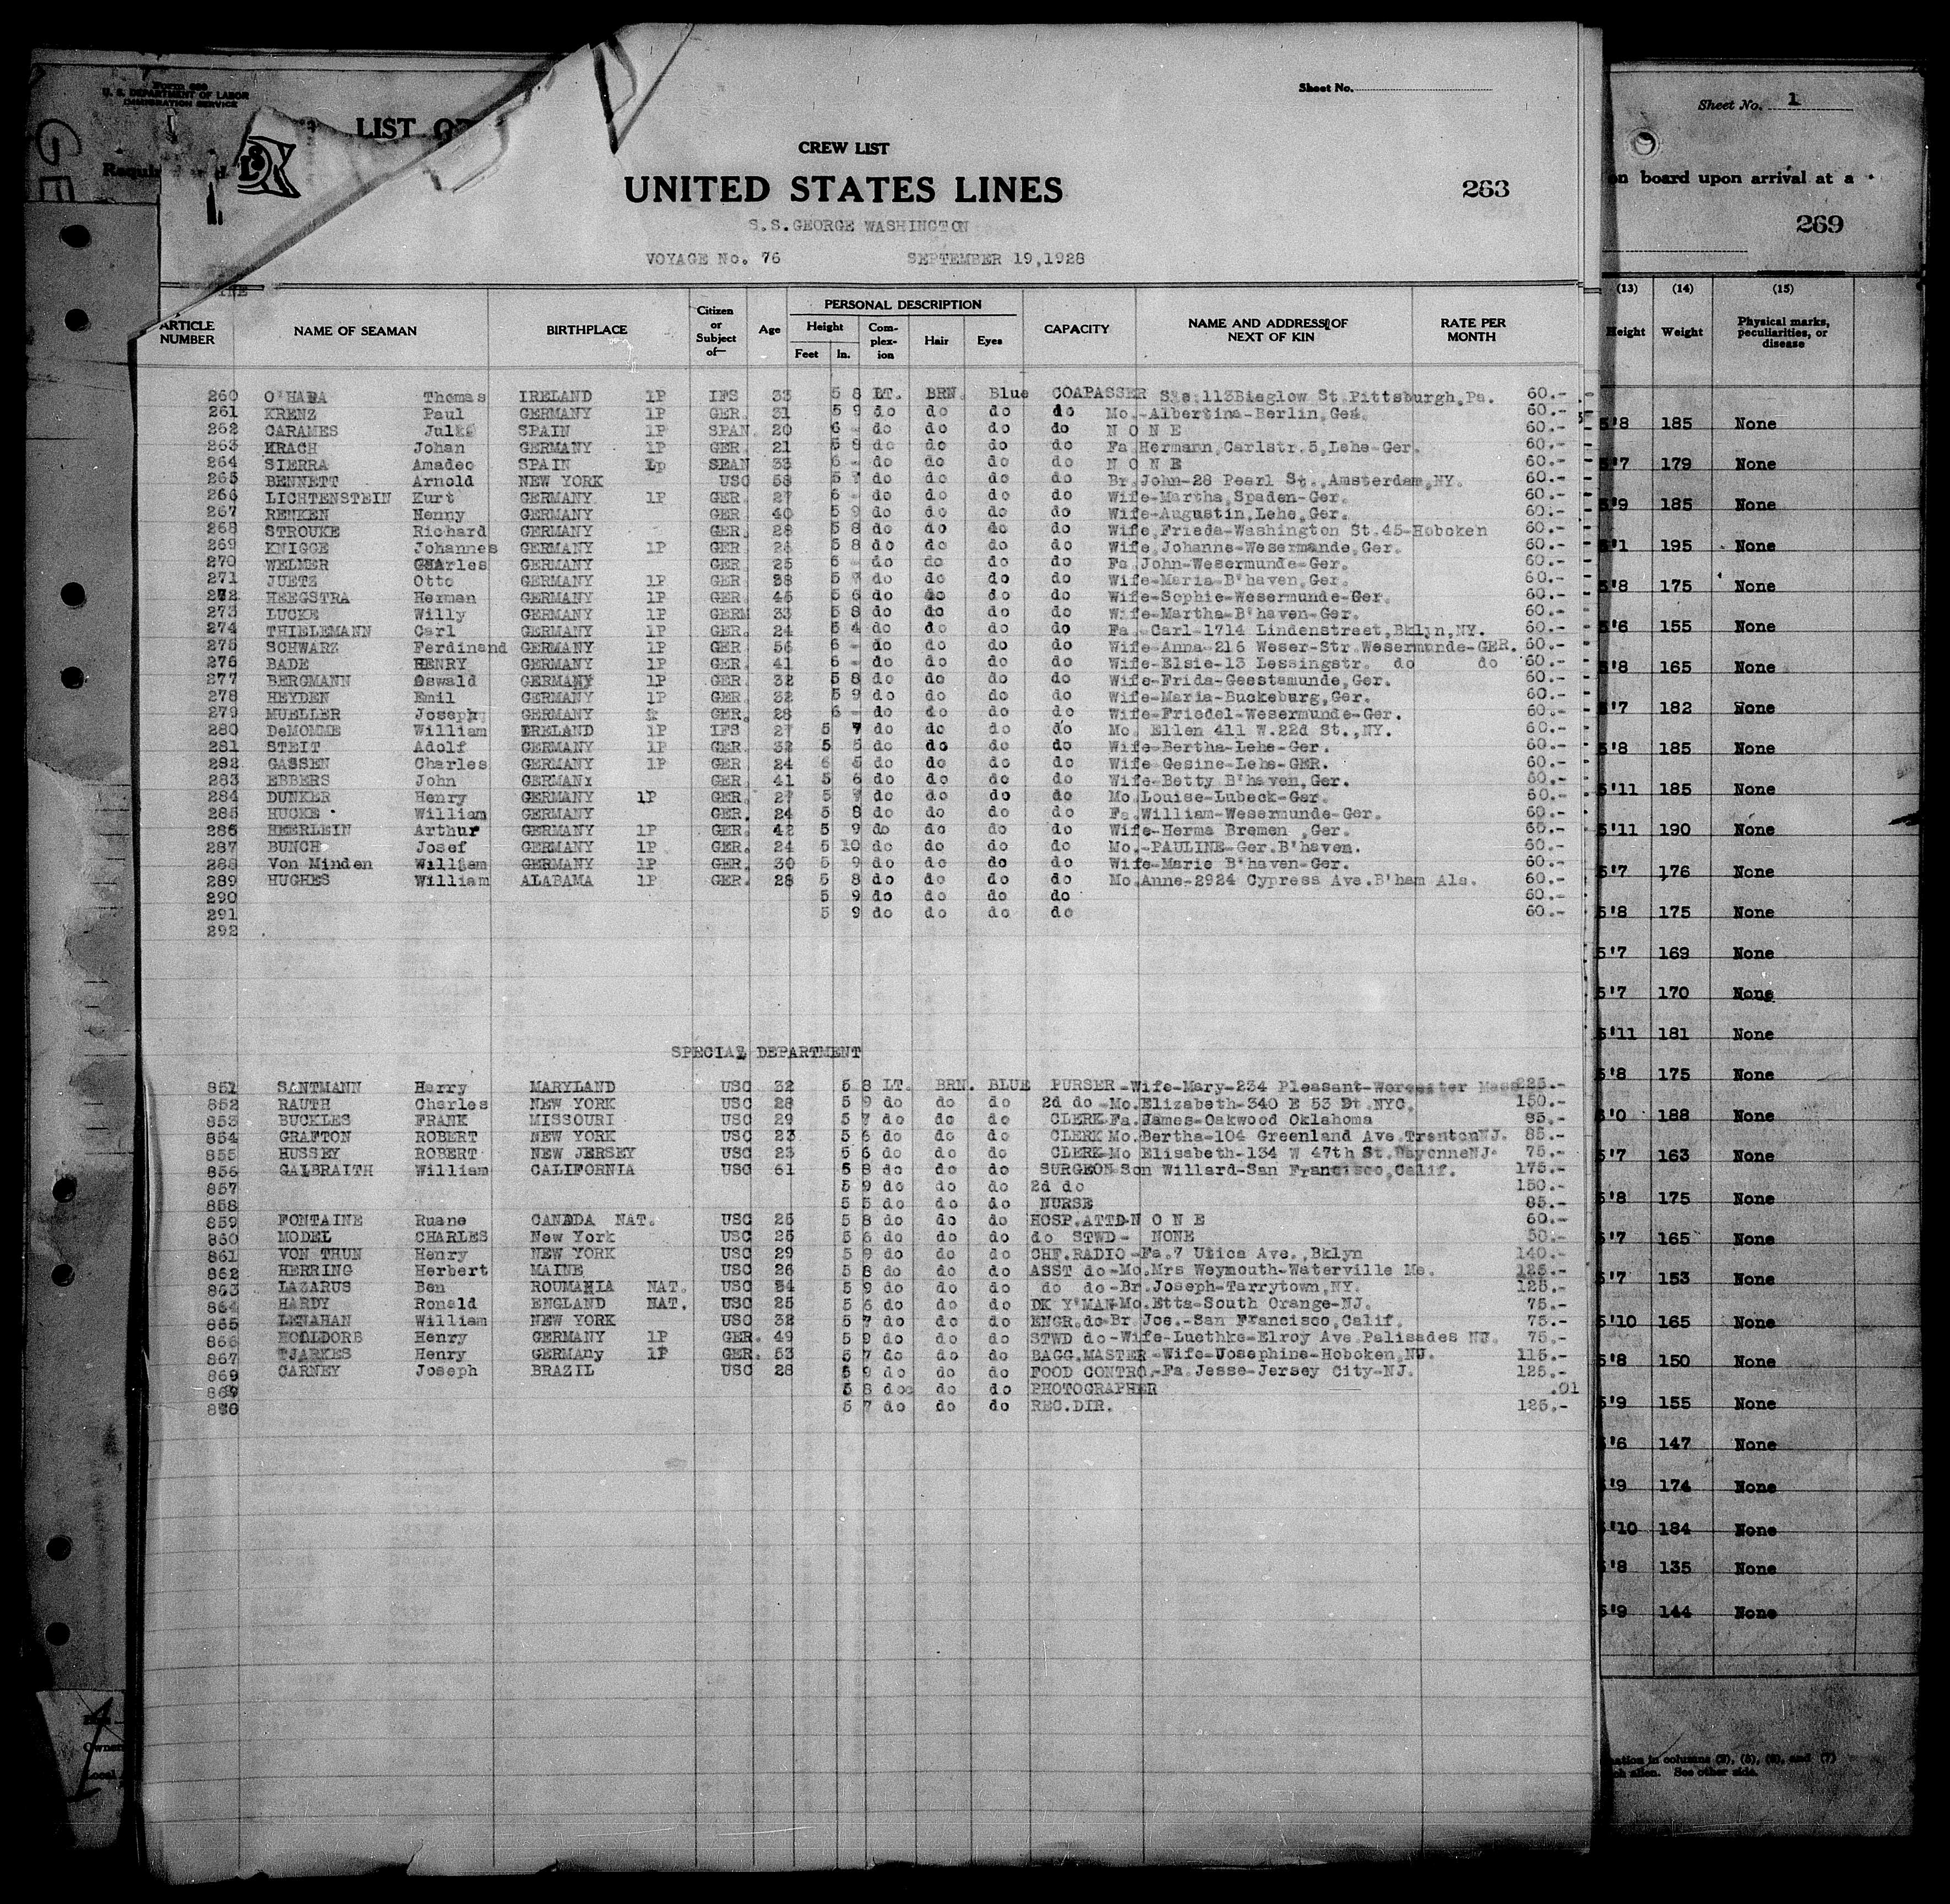 FORM 689
U. S. DEPARTMENT OF LABOR
IMMIGRATION SERVICE
LIST OF
Sheet No.
CREW LIST
UNITED STATES LINES
263
S.S.GEORGE WASHINGTON
VOYAGE No. 76 SEPTEMBER 19,1928
ARTICLE NUMBER NAME OF SEAMAN BIRTHPLACE Citizen or Subject of— Age PERSONAL DESCRIPTION Height Feet In. Complexion Hair Eyes CAPACITY NAME AND ADDRESS OF NEXT OF KIN RATE PER MONTH
260 O'HARA Thomas IRELAND 1P IFS 33 5 8 LT. BRN. Blue COAPASSER Sis.113Bieglow St.Pittsburgh,Pa. 60.-
261 KRENZ Paul GERMANY 1P GER. 31 5 9 do do do do Mo.-Albertina-Berlin,Ger. 60.-
262 CARAMES SPAIN 1P SPAN. 20 6 - do do do do N O N E 60.-
263 KRACH Johan GERMANY 1P GER. 21 5 8 do do do do Fa.Hermann,Carlstr.5,Lehe-Ger. 60.-
264 SIERRA Amadeo SPAIN 1p SPAN 33 6 - do do do do N O N E 60.-
265 BENNETT Arnold NEW YORK USC 58 5 7 do do do do Br.John-28 Pearl St.,Amsterdam,NY. 60.-
266 LICHTENSTEIN Kurt GERMANY 1P GER. 27 6 - do do do do Wife-Martha,Spaden-Ger. 60.-
267 RENKEN Henny GERMANY GER. 40 5 9 do do do do Wife-Augustin,Lehe,Ger. 60.-
268 STROUKE Richard GERMANY GER. 28 5 8 do do do do Wife,Frieda-Washington St.45-Hoboken 60.-
269 KNIGGE Johannes GERMANY 1P GER. 24 5 8 do do do do Wife,Johanne-Wesermande,Ger. 60.-
270 WELMER Charles GERMANY GER. 25 6 - do do do do Fa.John-Wesermunde-Ger. 60.-
271 JUETZ Otto GERMANY 1P GER. 38 5 7 do do do do Wife-Maria-B'haven,Ger. 60.-
272 HEEGSTRA Herman GERMANY 1P GER. 45 5 6 do do do do Wife-Sophie-Wesermunde-Ger. 60.-
273 LUCKE Willy GERMANY 1P GERM 33 5 8 do do do do Wife-Martha-B'haven-Ger. 60.-
274 THIELEMANN Carl GERMANY 1P GER. 24 5 4 do do do do Fa. Carl-1714 Lindenstreet,Bklyn,NY. 60.-
275 SCHWARZ Ferdinand GERMANY 1P GER. 56 6 - do do do do Wife-Anna-216 Weser-Str.Wesermunde-GER. 60.-
276 BADE HENRY GERMANY 1P GER. 41 6 - do do do do Wife-Elsie-13 Lessingstr. do do 60.-
277 BERGMANN Oswald GERMANY 1P GER. 32 5 8 do do do do Wife-Frida-Geestemunde,Ger. 60.-
278 HEYDEN Emil GERMANY 1P GER. 32 5 9 do do do do Wife-Maria-Buckeburg,Ger. 60.-
279 MUELLER Joseph GERMANY GER. 28 6 - do do do do Wife-Friedel-Wesermunde-Ger. 60.-
280 DeMOMME William IRELAND 1P IFS 27 5 7 do do do do Mo. Ellen 411 W.22d St.,NY. 60.-
281 STEIT Adolf GERMANY 1P GER. 32 5 5 do do do do Wife-Bertha-Lehe-Ger. 60.-
282 GASSEN Charles GERMANY 1P GER. 24 6 5 do do do do Wife Gesine-Lehe-GER. 60.-
283 EBBERS John GERMANY GER. 41 5 6 do do do do Wife-Betty B'haven,Ger. 60.-
284 DUNKER Henry GERMANY 1P GER. 27 5 7 do do do do Mo.Louise-Lubeck-Ger. 60.-
285 HUCKE William GERMANY GER. 24 5 8 do do do do Fa.William-Wesermunde-Ger. 60.-
286 HEERLEIN Arthur GERMANY 1P GER. 42 5 9 do do do do Wife-Herma Bremen ,Ger. 60.-
287 BUNCH Josef GERMANY 1P GER. 24 5 10 do do do do Mo.-PAULINE-Ger.B'haven. 60.-
288 Von Minden William GERMANY 1P GER. 30 5 9 do do do do Wife-Marie B'haven-Ger. 60.-
289 HUGHES William ALABAMA 1P GER. 28 5 8 do do do do Mo.Anne-2924 Cypress Ave.B'ham Ala. 60.-
290 5 9 do do do do 60.-
291 5 9 do do do do 60.-
292
SPECIAL DEPARTMENT
851 SANTMANN Harry MARYLAND USC 32 5 8 LT. BRN. BLUE PURSER-Wife-Mary-234 Pleasant-Worcester Mass 225.-
852 RAUTH Charles NEW YORK USC 28 5 9 do do do 2d do -Mo.Elizabeth-340 E 53 Dt.NYC. 150.-
853 BUCKLES FRANK MISSOURI USC 29 5 7 do do do CLERK-Fa.James-Oakwood Oklahoma 85.-
854 GRAFTON ROBERT NEW YORK USC 23 5 6 do do do CLERK Mo.Bertha-104 Greenland Ave.TrentonNJ. 85.-
855 HUSSEY ROBERT NEW JERSEY USC 23 5 6 do do do CLERK-Mo Elisabeth-134 W 47th St.BayonneNJ. 75.-
856 GALBRAITH William CALIFORNIA USC 61 5 8 do do do SURGEON Son Willard-San Francisco,Calif. 175.-
857 5 9 do do do 2d do 150.-
858 5 5 do do do NURSE 85.-
859 FONTAINE Ruane CANADA NAT. USC 25 5 8 do do do HOSP.ATTD-N O N E 60.-
860 MODEL CHARLES New York USC 25 5 6 do do do do STWD- NONE 50.-
861 VON THUN Henry NEW YORK USC 29 5 9 do do do CHF.RADIO-Fa.7 Utica Ave.,Bklyn 140.-
862 HERRING Herbert MAINE USC 26 5 8 do do do ASST do-Mo.Mrs Weymouth-Waterville Me. 125.-
863 LAZARUS Ben ROUMANIA NAT. USC 34 5 9 do do do do do-Br.Joseph-Tarrytown,NY. 125.-
864 HARDY Ronald ENGLAND NAT. USC 25 5 6 do do do DK Y'MAN-Mo.Etta-South Orange-NJ. 75.-
865 LENAHAN William NEW YORK USC 32 5 7 do do do ENGR.do-Br.Joe.-San Francisco,Calif. 75.-
866 Henry GERMANY 1P GER. 49 5 9 do do do STWD do-Wife-Luethke-Elroy Ave.Palisades NJ. 75.-
867 TJARKES Henry GERMANy 1P GER. 53 5 7 do do do BAGG.MASTER-Wife-Josephine-Hoboken,NJ. 115.-
869 CARNEY Joseph BRAZIL USC 28 5 9 do do do FOOD CONTRO.-Fa.Jesse-Jersey City-NJ. 125.-
869 5 8 do do do PHOTOGRAPHER .01
870 5 7 do do do REC.DIR. 125.-
Sheet No. 1
on board upon arrival at a
269
(13) (14) (15)
Height Weight Physical marks, peculiarities, or disease
5'8 185 None
5'7 179 None
5'9 185 None
5'1 195 None
5'8 175 None
5'6 155 None
5'8 165 None
5'7 182 None
5'8 185 None
5'11 185 None
5'11 190 None
5'7 176 None
5'8 175 None
5'7 169 None
5'7 170 None
5'11 181 None
5'8 175 None
5'0 188 None
5'7 163 None
5'8 175 None
5'7 165 None
5'7 153 None
5'10 165 None
5'8 150 None
5'9 155 None
5'6 147 None
5'9 174 None
5'10 184 None
5'8 135 None
5'9 144 None
in columns (2), (5), (6), and (7)
alien. See other side.